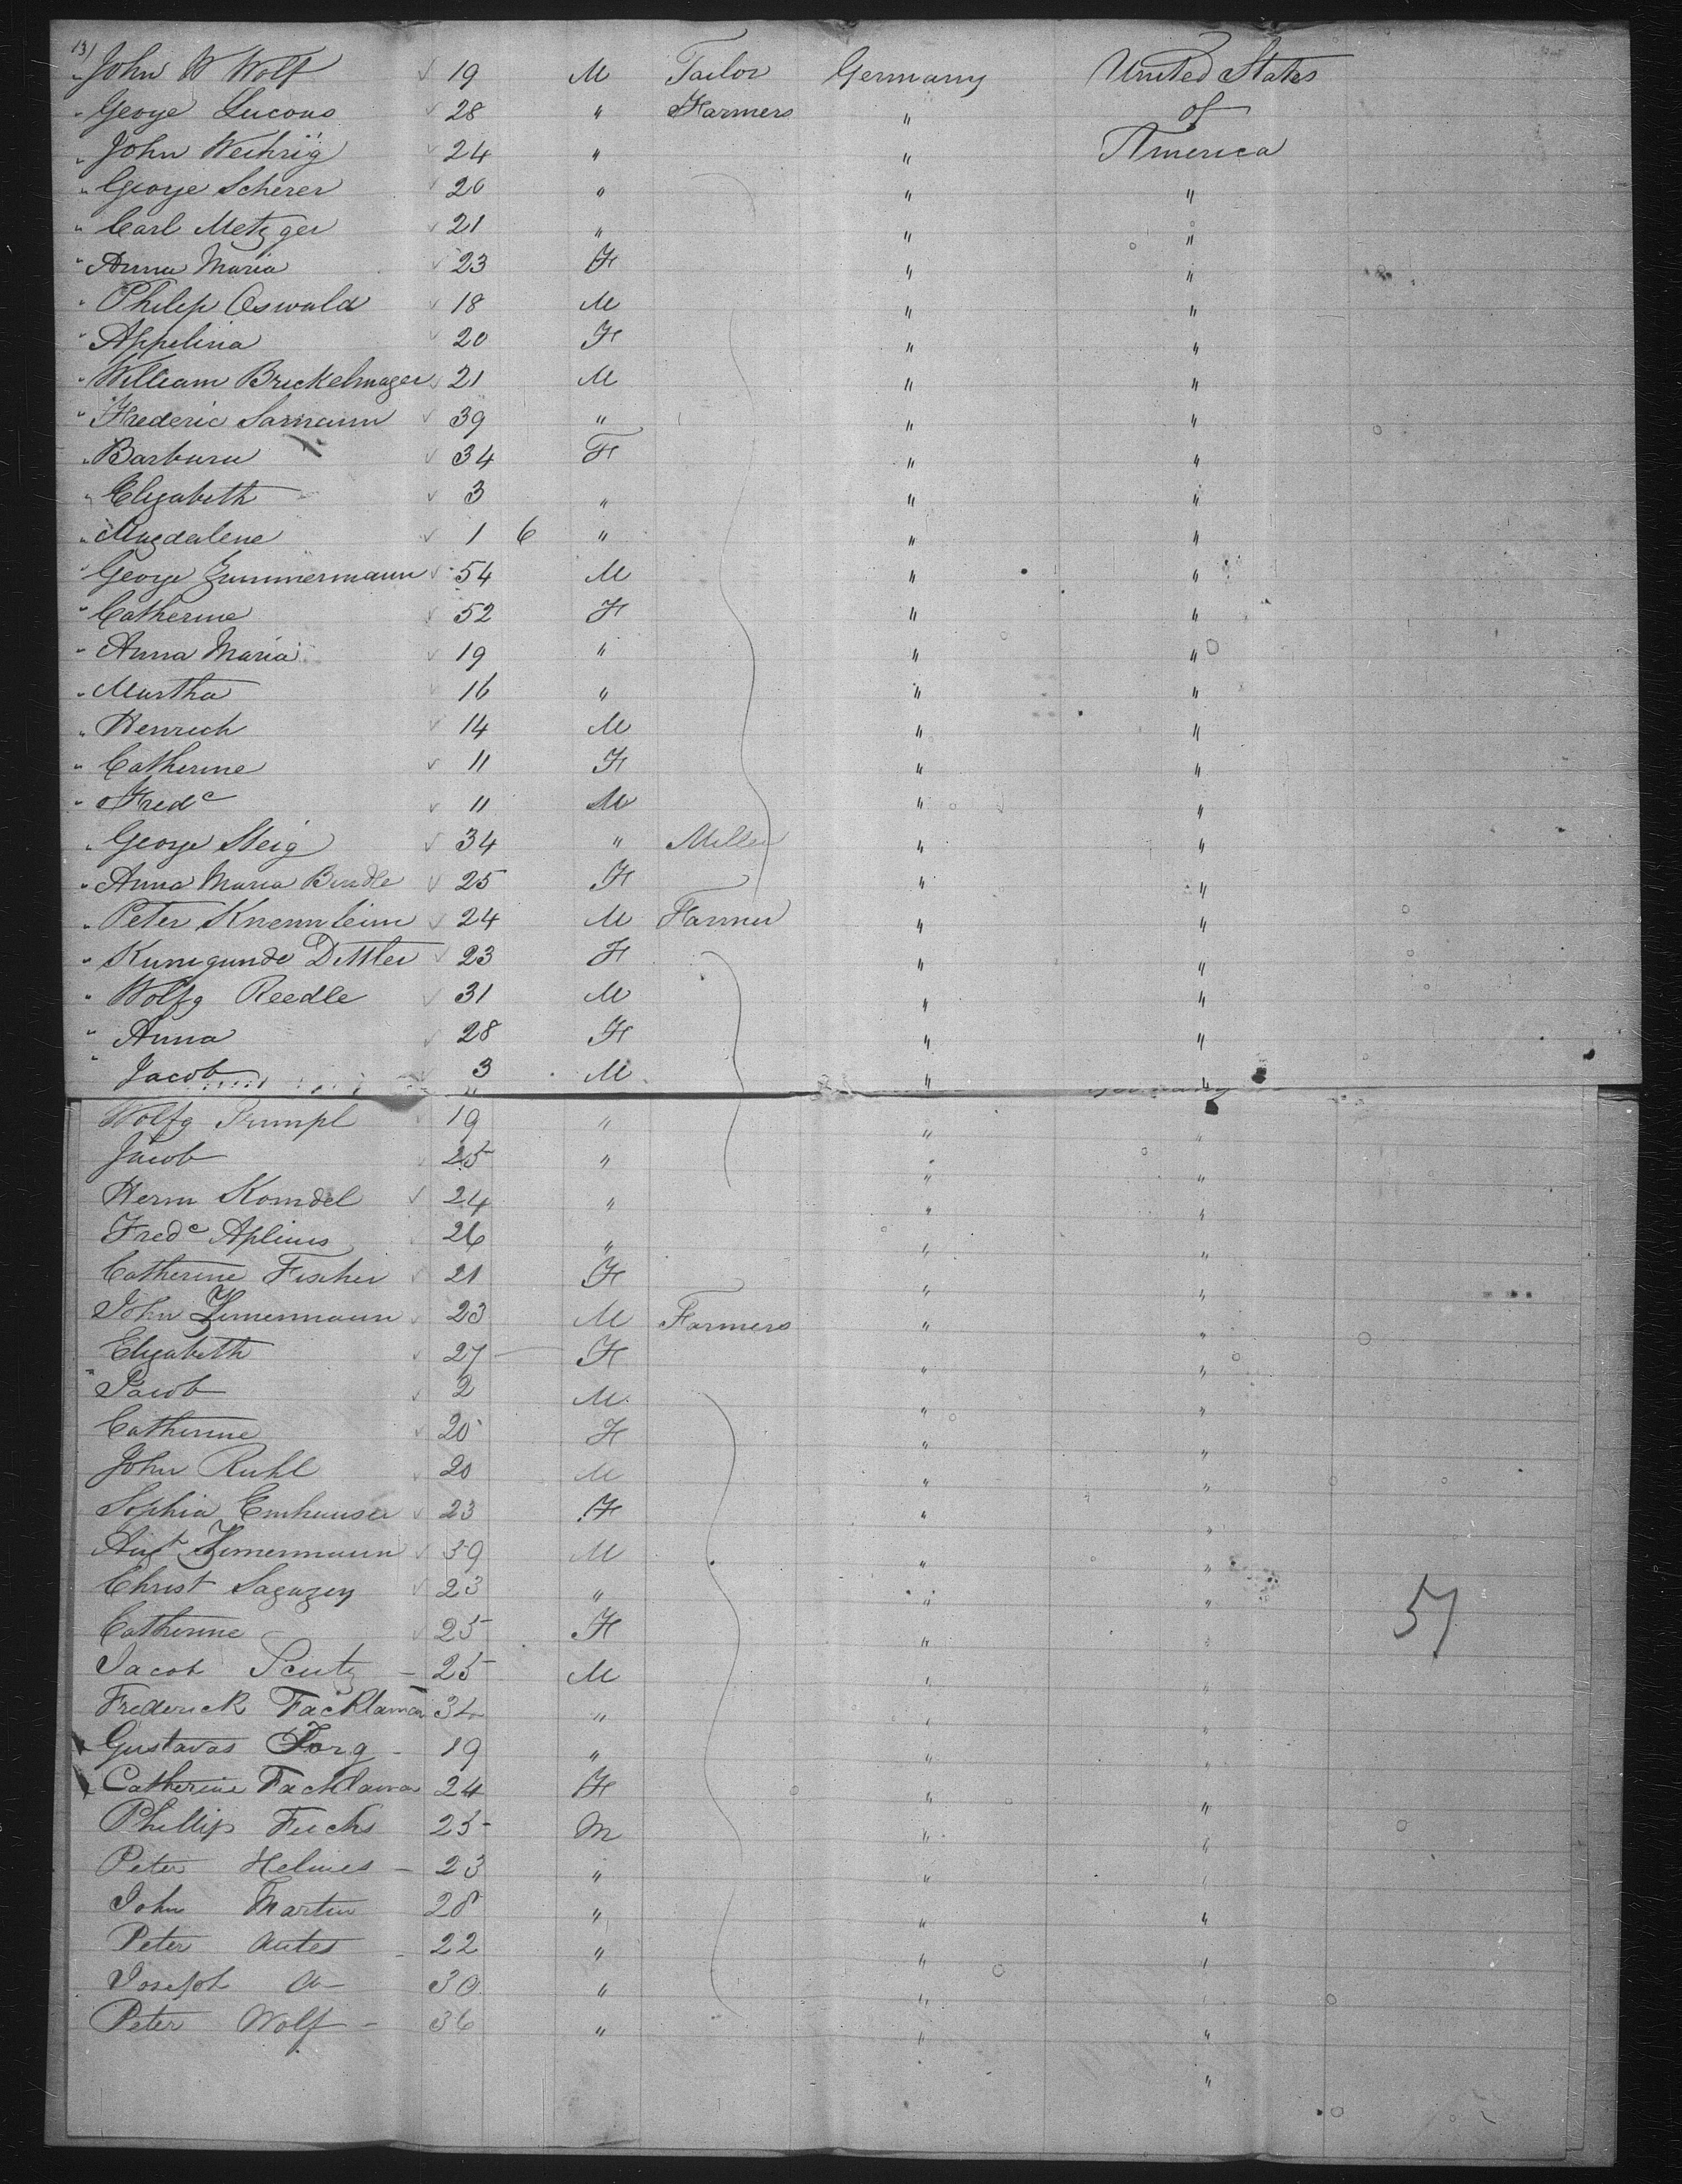 13)
" John W Wolf √ 19 M Tailor Germany United States
" George Lucous √ 28 " Farmers " of
" John Weihrig √ 24 " " America
" George Scherer √ 20 " " "
" Carl Metzger √ 21 " " "
" Anna Maria √ 23 F " "
" Philip Oswald √ 18 M " "
" Appelina √ 20 F " "
" William Brickelmager √ 21 M " "
" Frederic Samann √ 39 " " "
" Barbara √ 34 F " "
" Elizabeth √ 3 " " "
" Magdalene √ 1 6 " " "
" George Zummermann √ 54 M " "
" Catherine √ 52 F " "
" Anna Maria √ 19 " " "
" Martha √ 16 " " "
" Henrich √ 14 M " "
" Catherine √ 11 F " "
" Fredc √ 11 M " "
" George Steig √ 34 " Miller " "
" Anna Maria Bendle √ 25 F " "
" Peter Knemnleim √ 24 M Farmer " "
" Kunigunde Dittler √ 23 F " "
" Wolfg Reedle √ 31 M " "
" Anna √ 28 F " "
" Jacob √ 3 M " "
Wolfg Pumpl √ 19 " " "
Jacob √ 25 " " "
Herm Komdel √ 24 " " "
Fredc Aplius 26 " " "
Catherine Fischer √ 21 F " "
John Zimermann √ 23 M Farmers " "
Elizabeth √ 27 F " "
" Jacob √ 2 M " "
Catherine √ 20 F " "
John Ruhl √ 20 M " "
Sophia Emhauser √ 23 F " "
Augt Zimermann √ 39 M " "
Christ Sagazey √ 23 " " "
Catherine √ 25 F " "
Jacob Scutz - 25 M " "
Frederick Facklaman 34 " " "
Gustavas Jorg - 19 " " "
Catherine Facklaman 24 F " "
Phillip Fuchs 25 - M " "
Peter Helmes - 23 " " "
John Martin 28 " " "
Peter Autes - 22 " " "
Joseph A- 30 " " "
Peter Wolf - 36 " " "
"
57